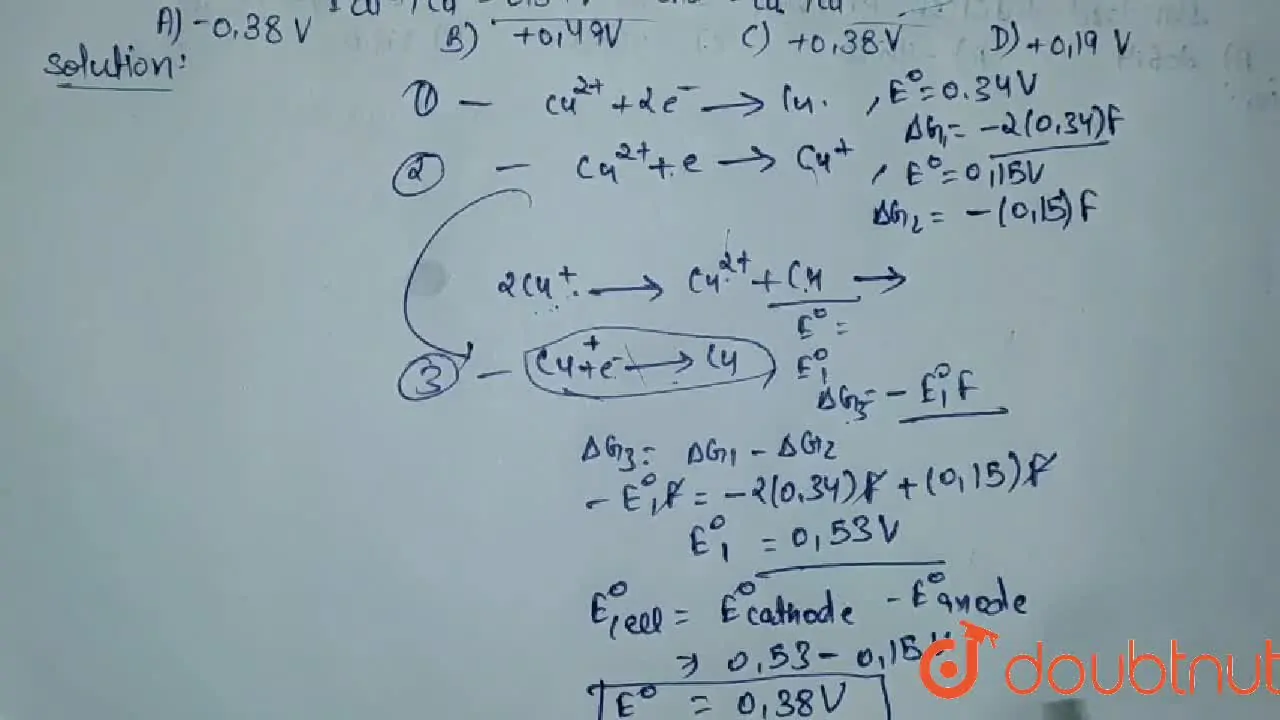 A) -0,38 V B) +0,49V C) +0,38V D) +0,19 V
Solution:
① — Cu²⁺ + 2e⁻ → Cu. , E⁰ = 0.34V
ΔG₁ = -2(0,34)F
② — Cu²⁺ + e → Cu⁺ , E⁰ = 0,15V
ΔG₂ = -(0,15)F
2Cu⁺ → Cu²⁺ + Cu →
E⁰ =
③ — Cu⁺ + e⁻ → Cu E⁰₁
ΔG₃ = - E⁰₁F
ΔG₃ = ΔG₁ - ΔG₂
- E⁰₁F = -2(0,34)F + (0,15)F
E⁰₁ = 0,53V
E⁰cell = E⁰cathode - E⁰anode
⇒ 0,53 - 0,15V
E⁰ = 0,38V
doubtnut